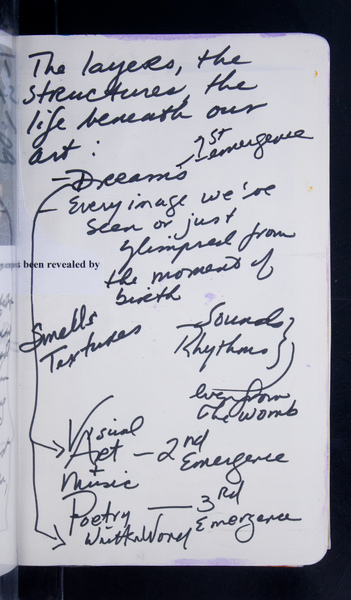 The layers, the
structures, the
life beneath our
art:
1st
emergence
- Dreams
- Every image we've
seen or just
glimpsed from
been revealed by
the moment of
birth
Smells
Textures
- Sounds
Rhythms
even from
the womb
Visual
Art - 2nd
Emergence
+
Music
Poetry — 3rd
Emergence
Written Word